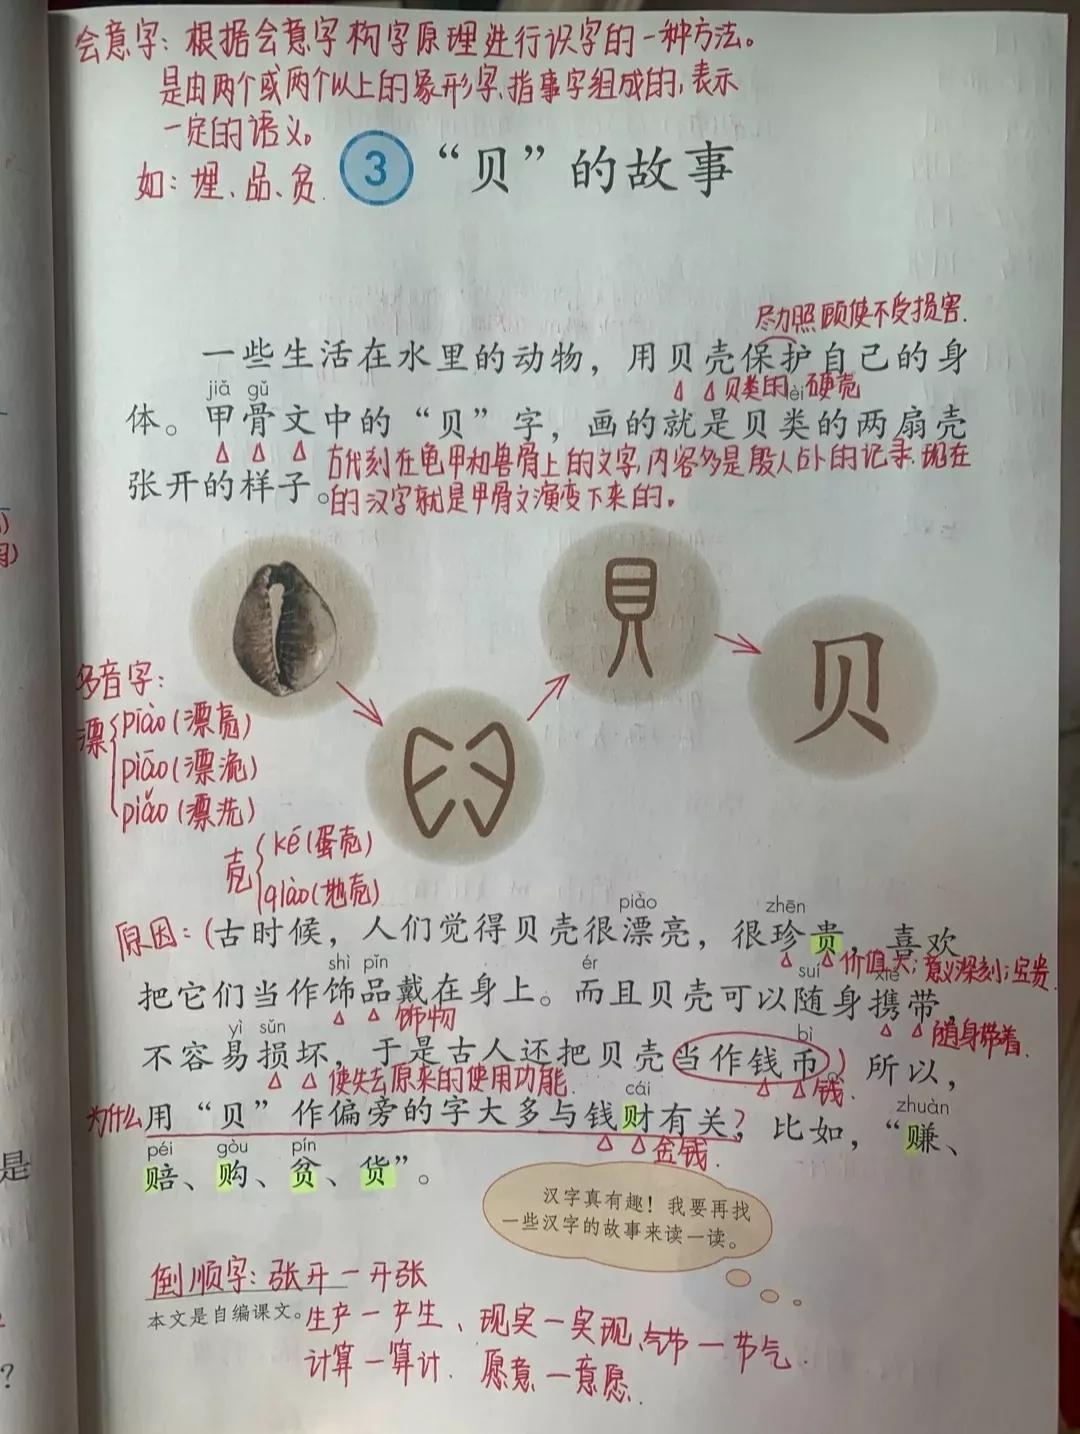 会意字：根据会意字构字原理进行识字的一种方法。
是由两个或两个以上的象形字、指事字组成的，表示
一定的语义。
如：埋、品、贫.
3 “贝”的故事
尽力照顾使不受损害.
一些生活在水里的动物，用贝壳保护自己的身
贝类的硬壳
jiǎ gǔ
体。甲骨文中的“贝”字，画的就是贝类的两扇壳
古代刻在龟甲和兽骨上的文字,内容多是殷人占卜的记录.现在
张开的样子。
的汉字就是甲骨文演变下来的。
貝
贝
多音字：
漂
piào(漂亮)
piāo(漂流)
piǎo(漂洗)
壳
ké(蛋壳)
qiào(地壳)
piào zhēn
原因：(古时候，人们觉得贝壳很漂亮，很珍贵，喜欢
价值大；意义深刻；宝贵.
shì pǐn ér suí xié
把它们当作饰品戴在身上。而且贝壳可以随身携带，
饰物
随身带着.
yì sǔn bì
不容易损坏，于是古人还把贝壳当作钱币。)所以，
使失去原来的使用功能.
钱.
cái zhuàn
为什么用“贝”作偏旁的字大多与钱财有关？比如，“赚、
金钱.
péi gòu pín
赔、购、贫、货”。
汉字真有趣！我要再找
一些汉字的故事来读一读。
倒顺字：张开—开张
本文是自编课文。
生产—产生、现实—实现、气节—节气.
计算—算计. 愿意—意愿.
是
?